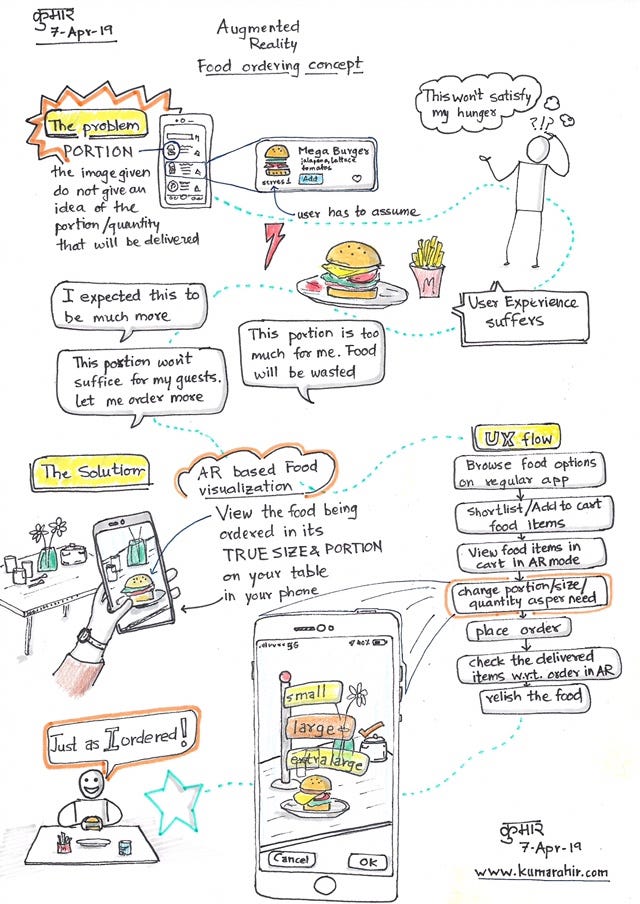 कुमार
7-Apr-19
Augmented
Reality
Food ordering concept
The problem
PORTION
the image given
do not give an
idea of the
portion/quantity
that will be delivered
Mega Burger
jalapeno, lettuce
tomatos
serves 1
Add
user has to assume
This won't satisfy
my hunger
?!?
M
User Experience
suffers
I expected this to
be much more
This portion won't
suffice for my guests.
let me order more
This portion is too
much for me. Food
will be wasted
The Solution
AR based Food
visualization
View the food being
ordered in its
TRUE SIZE & PORTION
on your table
in your phone
UX flow
Browse food options
on regular app
Shortlist/Add to cart
food items
View food items in
cart in AR mode
change portion/size/
quantity as per need
place order
check the delivered
items w.r.t. order in AR
relish the food
5G
small
large
extra large
Cancel
OK
Just as I ordered!
कुमार
7-Apr-19
www.kumarahir.com